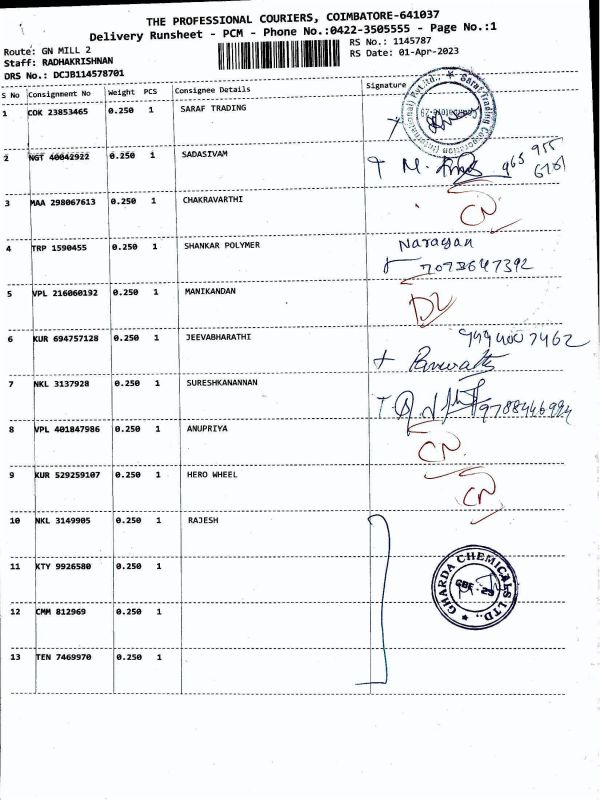 THE PROFESSIONAL COURIERS, COIMBATORE-641037
Delivery Runsheet - PCM - Phone No.:0422-3505555 - Page No.:1
Route: GN MILL 2
RS No.: 1145787
Staff: RADHAKRISHNAN
RS Date: 01-Apr-2023
DRS No.: DCJB114578701
S No Consignment No Weight PCS Consignee Details Signature
1 COK 23853465 0.250 1 SARAF TRADING
Saraf Trading Corporation (International) Pvt.Ltd.,
2 NGT 40042922 0.250 1 SADASIVAM
3 MAA 298067613 0.250 1 CHAKRAVARTHI CN
4 TRP 1590455 0.250 1 SHANKAR POLYMER Narayan
7073647392
5 VPL 216060192 0.250 1 MANIKANDAN DL
6 KUR 694757128 0.250 1 JEEVABHARATHI
7 NKL 3137928 0.250 1 SURESHKANANNAN
8 VPL 401847986 0.250 1 ANUPRIYA CN
9 KUR 529259107 0.250 1 HERO WHEEL CN
10 NKL 3149905 0.250 1 RAJESH
11 KTY 9926580 0.250 1
GHARDA CHEMICALS LTD.,
CBE - 29
12 CMM 812969 0.250 1
13 TEN 7469970 0.250 1